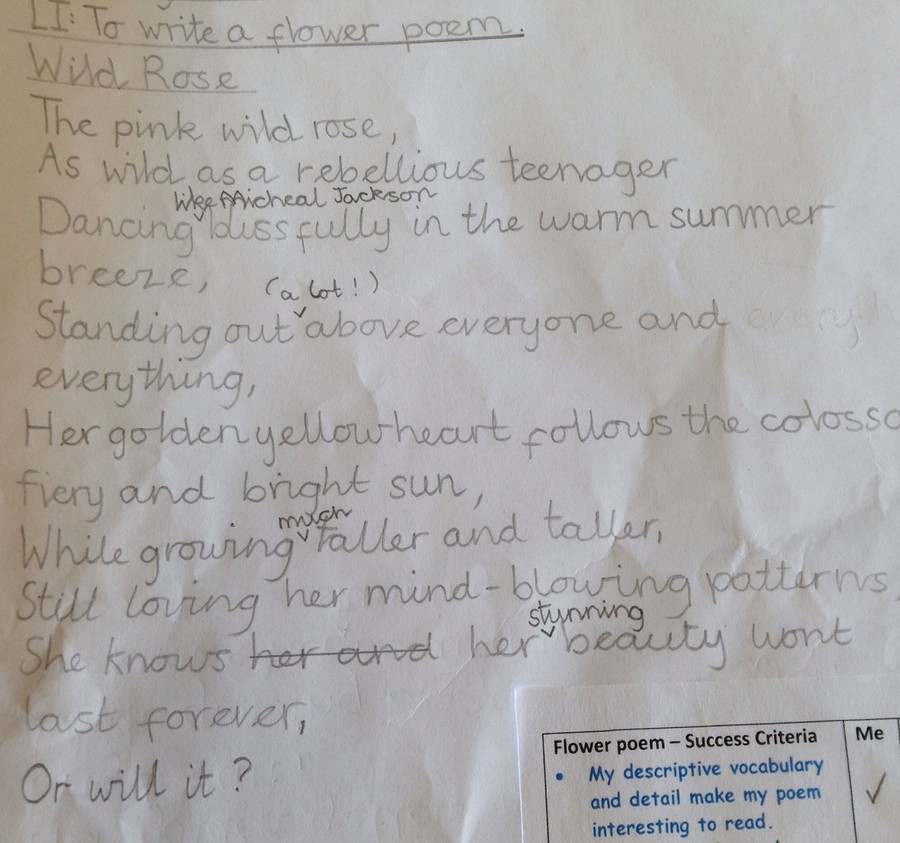 LI: To write a flower poem.
Wild Rose
The pink wild rose,
As wild as a rebellious teenager
like Micheal Jackson
Dancing blissfully in the warm summer
breeze,
(a lot!)
Standing out above everyone and
everything,
Her golden yellow heart follows the coloss
fiery and bright sun,
much
While growing taller and taller,
Still loving her mind-blowing patterns,
stunning
She knows her and her beauty wont
last forever,
Or will it?
Flower poem – Success Criteria
Me
• My descriptive vocabulary
and detail make my poem
interesting to read.
✓